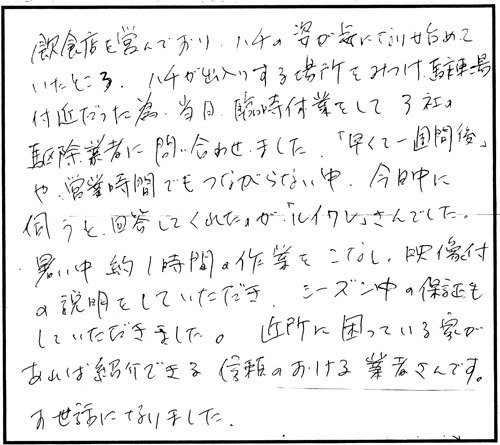 飲食店を営んでおり、ハチの姿が気になり始めて
いたところ、ハチが出入りする場所をみつけ、駐車場
付近だった為、当日、臨時休業をして3社の
駆除業者に問い合わせました。「早くて一週間後」
や、営業時間でもつながらない中、今日中に
伺うと、回答してくれたのが「ルイワレ」さんでした。
暑い中 約1時間の作業をこなし、映像付
の説明をしていただき、シーズン中の保証も
していただきました。近所に困っている家が
あれば紹介できる信頼のおける業者さんです。
お世話になりました。